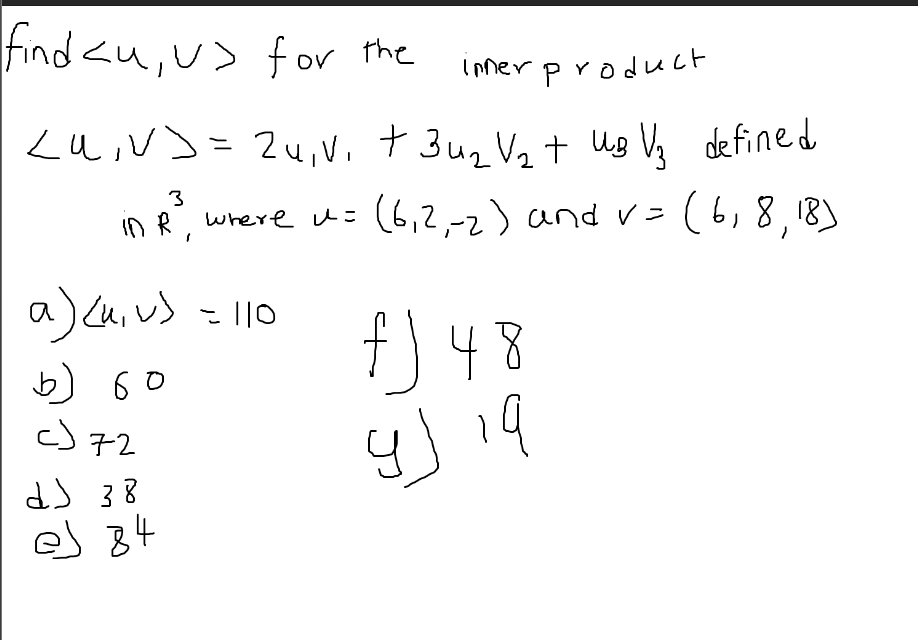 find <u,v> for the inner product
<u,v> = 2u₁v₁ + 3u₂v₂ + u₃v₃ defined
in R³, where u = (6,2,-2) and v = (6,8,18)
a) <u,v> = 110
b) 60
c) 72
d) 38
e) 84
f) 48
g) 19